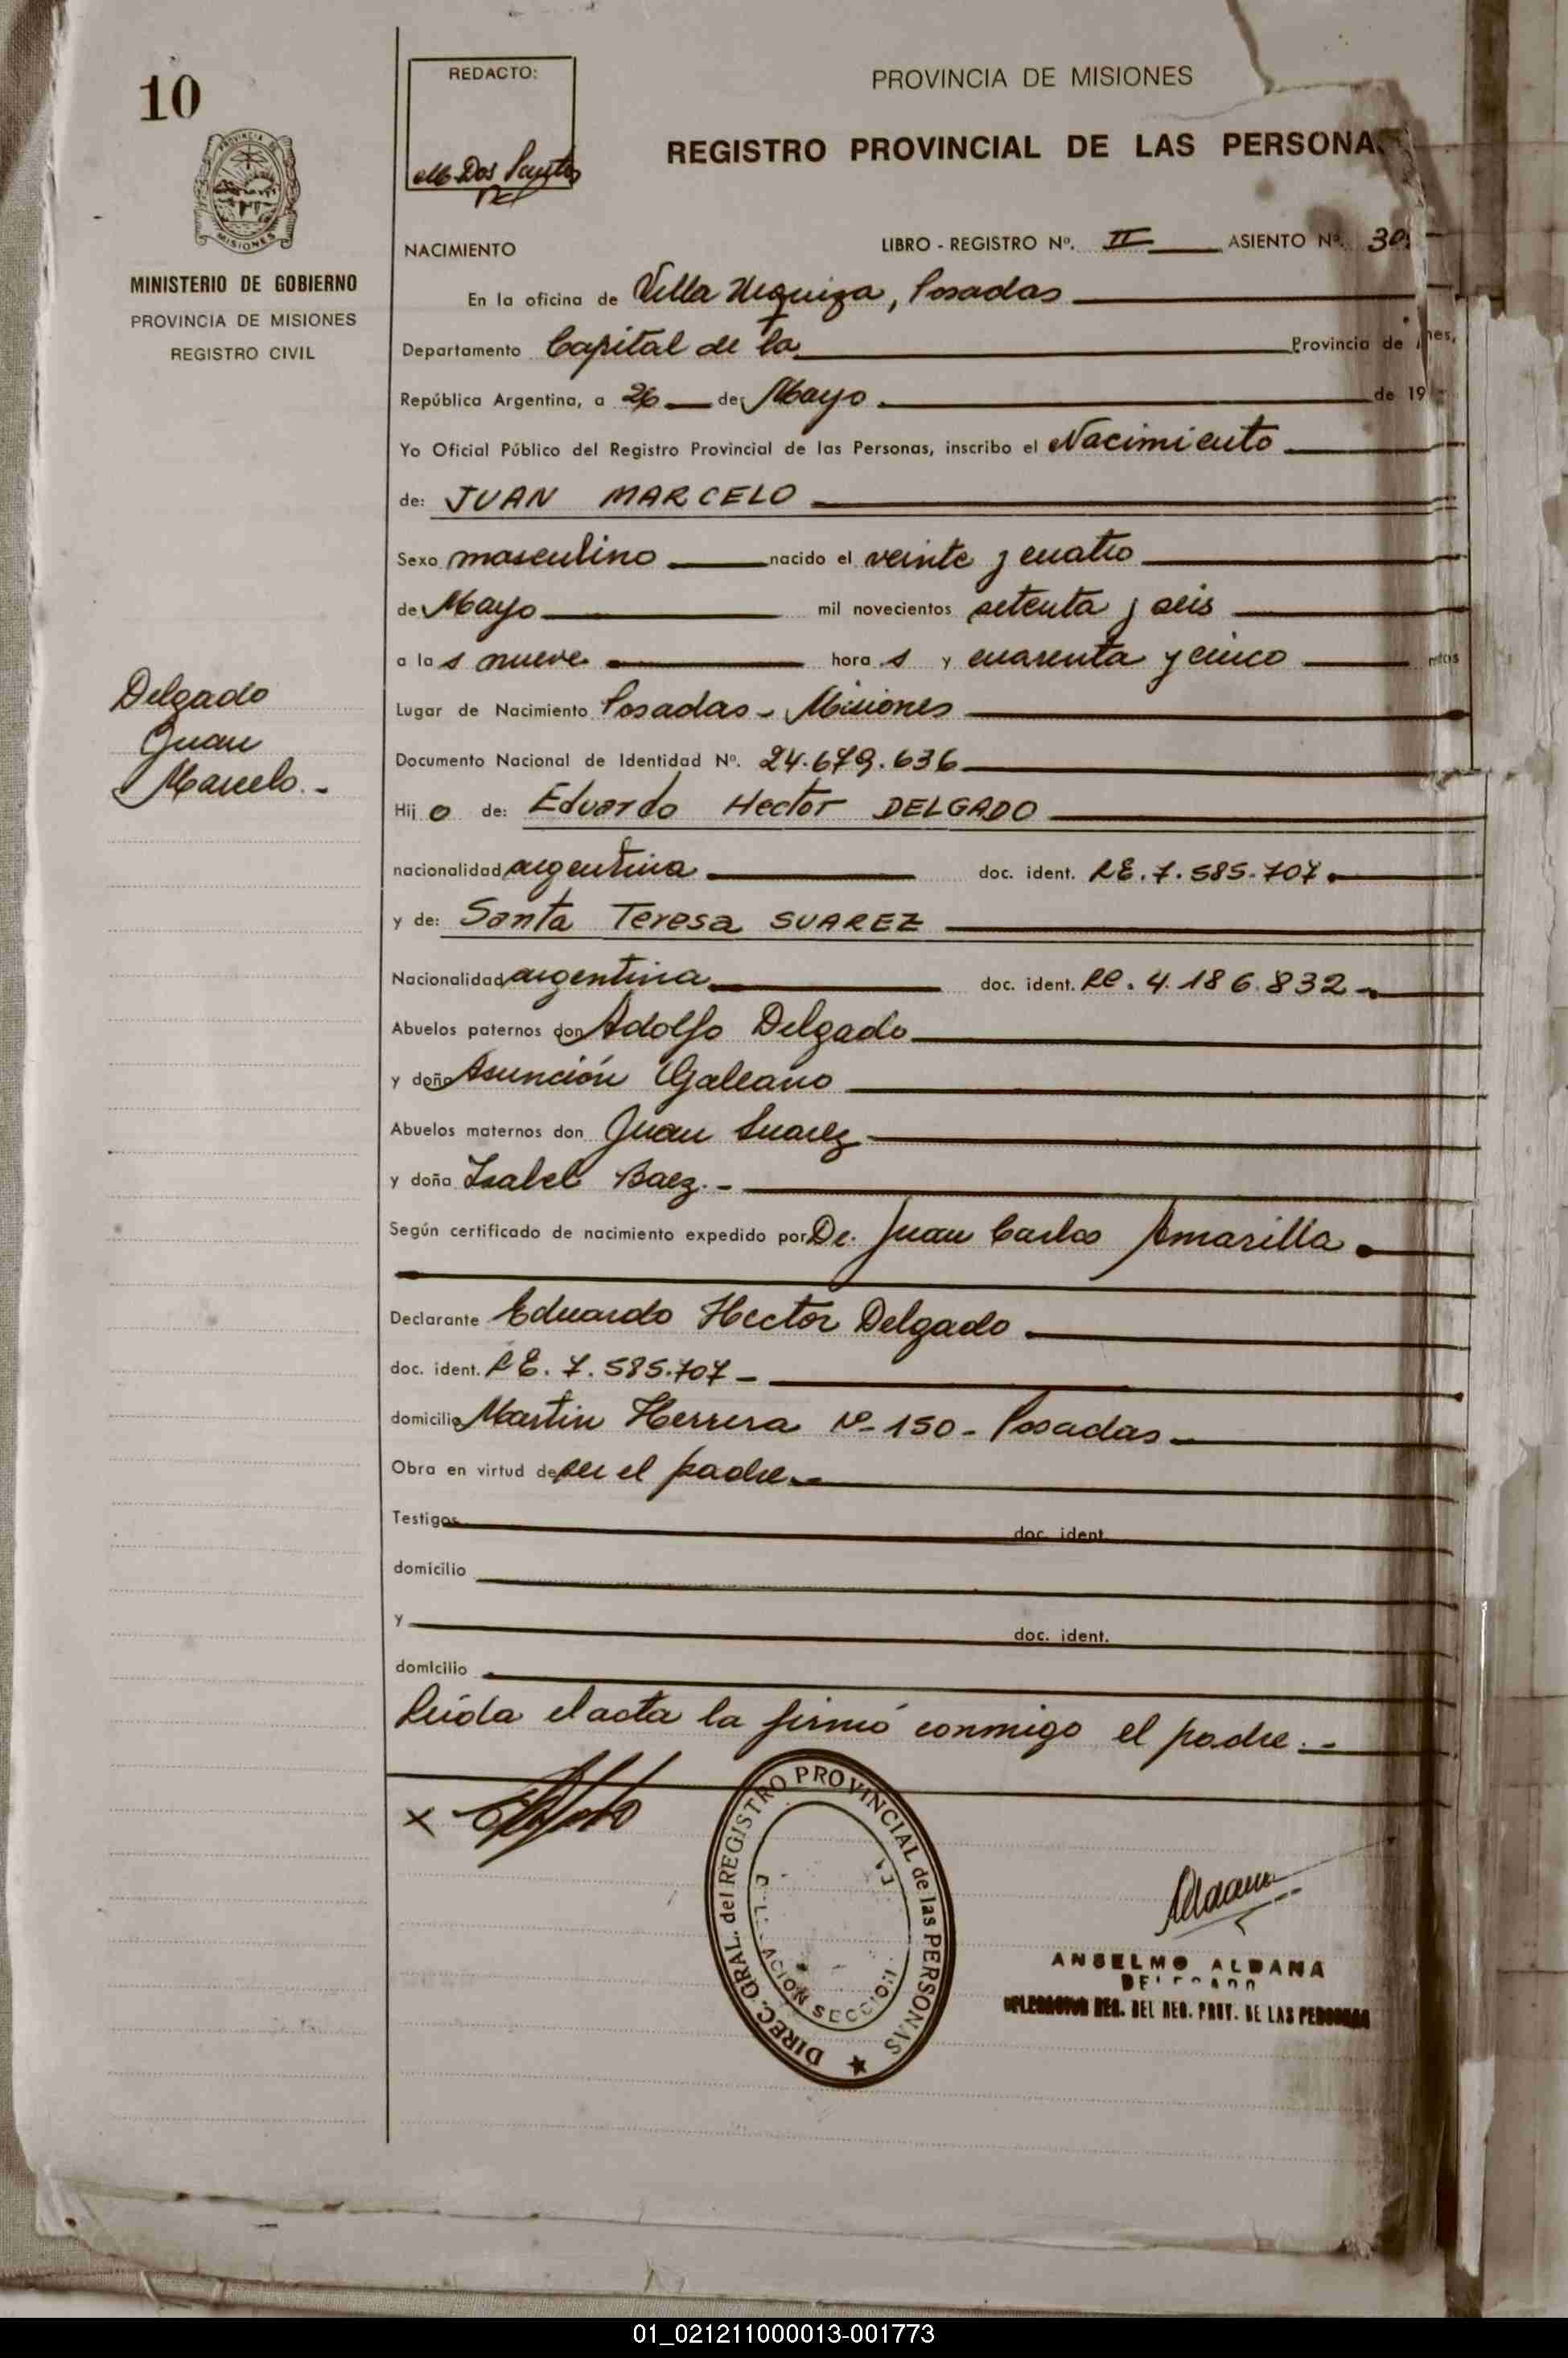 10
REDACTO:
M. Dos Santos
PROVINCIA DE MISIONES
REGISTRO PROVINCIAL DE LAS PERSONA
PROVINCIA DE
MISIONES
MINISTERIO DE GOBIERNO
PROVINCIA DE MISIONES
REGISTRO CIVIL
NACIMIENTO
LIBRO - REGISTRO Nº. II ASIENTO Nº. 30
En la oficina de Villa Urquiza, Posadas
Departamento Capital de la Provincia de nes,
República Argentina, a 26 de Mayo de 19
Yo Oficial Público del Registro Provincial de las Personas, inscribo el Nacimiento
de: JUAN MARCELO
Sexo masculino nacido el veinte y cuatro
de Mayo mil novecientos setenta y seis
a las nueve horas y cuarenta y cinco ntos
Lugar de Nacimiento Posadas - Misiones
Documento Nacional de Identidad Nº. 24.679.636
Hijo de: Eduardo Hector DELGADO
nacionalidad argentina doc. ident. LE. 7.585.707
y de: Santa Teresa SUAREZ
Nacionalidad argentina doc. ident. LC. 4.186.832
Abuelos paternos don Adolfo Delgado
y doña Asunción Galeano
Abuelos maternos don Juan Suarez
y doña Isabel Baez.-
Según certificado de nacimiento expedido por Dr. Juan Carlos Amarilla
Declarante Eduardo Hector Delgado
doc. ident. LE. 7.585.707 -
domicilio Martin Herrera Nº 150 - Posadas
Obra en virtud de ser el padre
Testigos doc. ident.
domicilio
y doc. ident.
domicilio
Leída el acta la firmó conmigo el padre.-
Delgado
Juan
Marcelo.-
x
DIREC. GRAL. del REGISTRO PROVINCIAL de las PERSONAS
SECCION
ANSELMO ALDANA
DELEGADO
REG. DEL REG. PROV. DE LAS PERSONAS
01_021211000013-001773